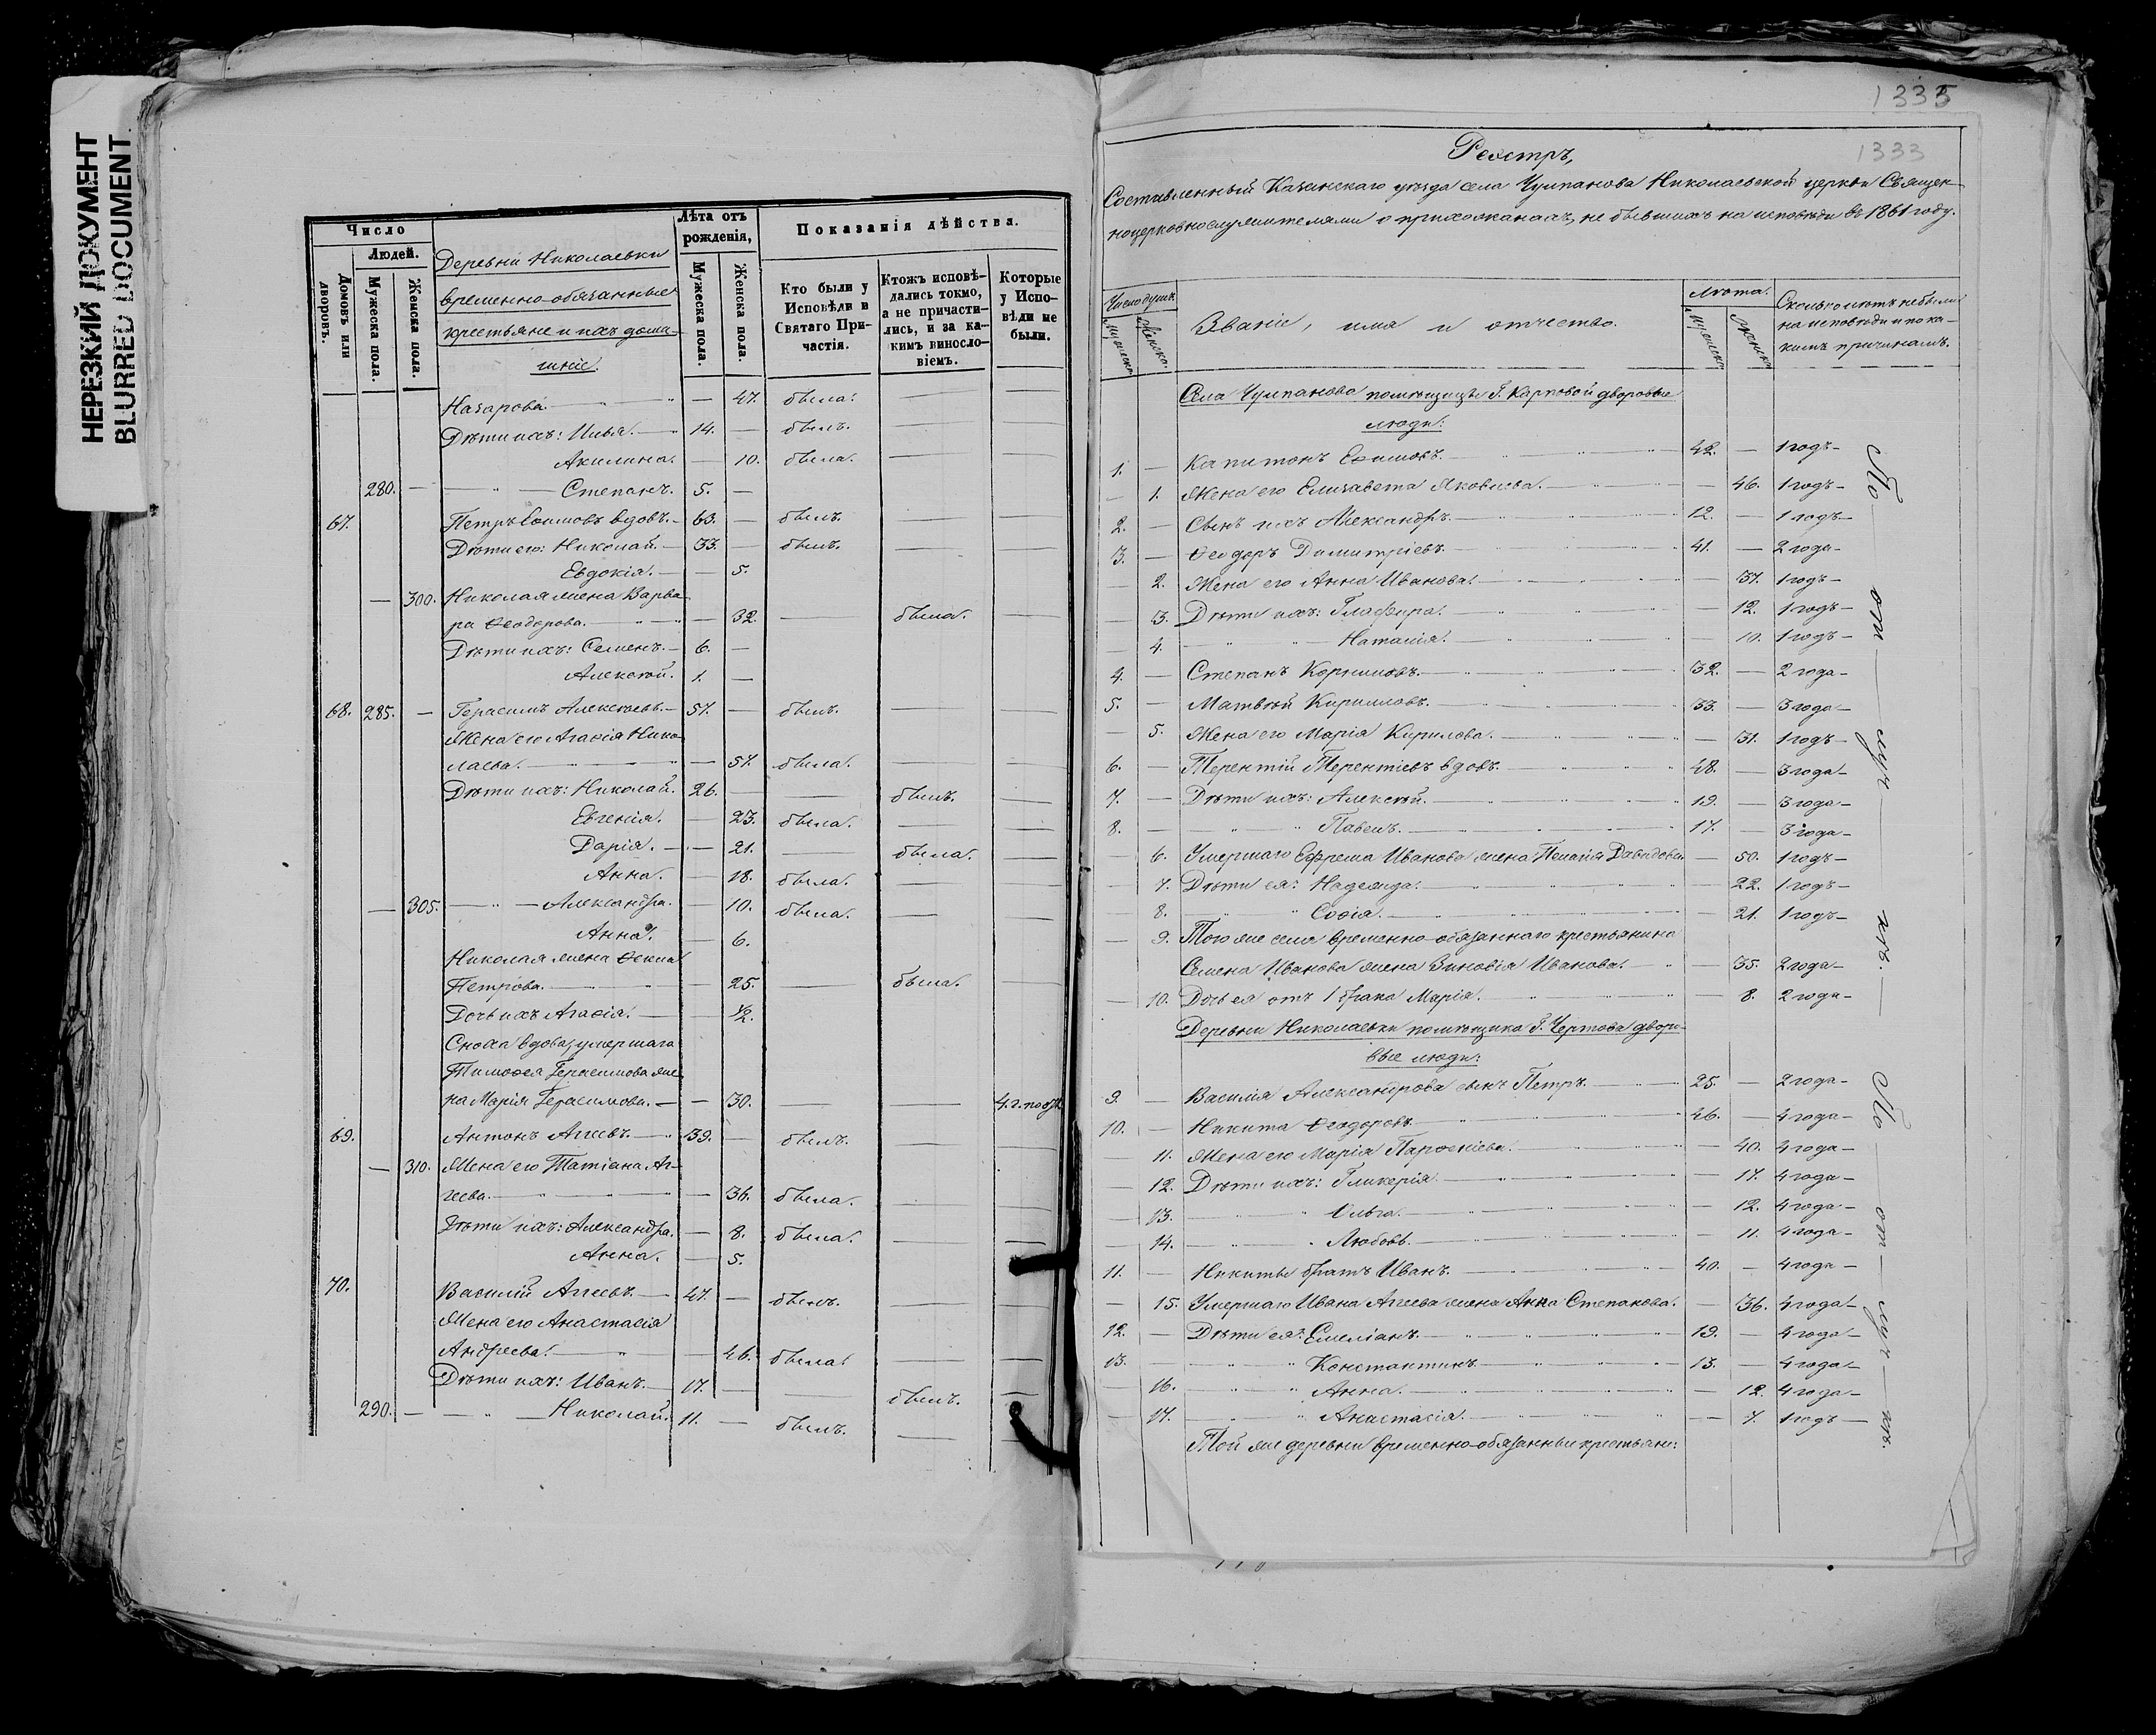 НЕРЕЗКИЙ ДОКУМЕНТ
BLURRED DOCUMENT
Число
Людей.
Домовъ или дворовъ.
Мужеска пола.
Женска пола.
Деревни Николаевки
временно-обязанные
крестьяне и ихъ дома-
шніе.
Лѣта отъ рожденія,
Мужеска пола.
Женска пола.
Показанія дѣйства.
Кто были у Исповѣди и Святаго При-частія.
Ктожъ исповѣ-дались токмо, а не причасти-лись, и за ка-кимъ винosло-віемъ.
Которые у Испо-вѣди не были.
Назарова. — 47. была. — —
Дѣти ихъ: Илья. 14. — былъ. — —
Акилина. — 10. была. — —
280. — Степанъ. 5. —
67. Петръ Ефимовъ вдовъ. 63. — былъ. — —
Дѣти его: Николай. 33. — былъ. — —
Евдокія. — 5.
— 300. Николая жена Варва-
ра Ѳеодорова. — 32. — была. —
Дѣти ихъ: Семенъ. 6. —
Алексѣй. 1. —
68. 285. — Герасимъ Алексѣевъ. 57. — былъ. — —
Жена его Агафія Нико-
лаева. — 57. была. — —
Дѣти ихъ: Николай. 26. — — былъ. —
Евгенія. — 23. была. — —
Дарія. — 21. — была. —
Анна. — 18. была. — —
— 305. Александра. — 10. была. — —
Анна. — 6.
Николая жена Ѳекла
Петрова. — 25. — была. —
Дочь ихъ Агафія. — ½.
Сноха вдова, умершаго
Тимоѳея Герасимова же-
на Марія Герасимова. — 30. — —
69. Антонъ Агеевъ. 39. — былъ. —
— 310. Жена его Татіана Аг-
геева. — 36. была. — —
Дѣти ихъ: Александра. — 8. была. — —
Анна. — 5.
70. Василій Агеевъ. 47. — былъ. — —
Жена его Анастасія
Андреева. — 46. была. — —
Дѣти ихъ: Иванъ. 17. — — былъ. —
290. — Николай. 11. — былъ. — —
1335
1333
Реестръ,
Составленный Казинскаго уѣзда села Чулпанова Николаевской церкви Священ-
ноцерковнослужителями о прихожанахъ, не бывшихъ на исповѣди въ 1861 году.
Число душъ
Мужеска.
Женска.
Званіе, имя и отчество.
Лѣта.
Мужеска
Женска
Сколько лѣтъ не были
на исповѣди и по ка-
кимъ причинамъ.
Села Чулпанова помѣщицы Г. Карповой дворовые
люди:
1. — Капитонъ Ефимовъ. 42. — 1 годъ —
— 1. Жена его Елизавета Яковлева. — 46. 1 годъ —
2. — Сынъ ихъ Александръ. 12. — 1 годъ —
3. — Ѳеодоръ Димитріевъ. 41. — 2 года —
— 2. Жена его Анна Иванова. — 37. 1 годъ —
— 3. Дѣти ихъ: Глафира. — 12. 1 годъ —
— 4. Наталія. — 10. 1 годъ —
4. — Степанъ Корниловъ. 32. — 2 года —
5. — Матвѣй Кирилловъ. 33. — 3 года —
— 5. Жена его Марія Кирилова. — 31. 1 годъ —
6. — Терентій Терентіевъ вдовъ. 48. — 3 года —
7. — Дѣти ихъ: Алексѣй. 19. — 3 года —
8. — Павелъ. 17. — 3 года —
— 6. Умершаго Ефрема Иванова жена Пелагія Давыдова. — 50. 1 годъ —
— 7. Дѣти ея: Надежда. — 22. 1 годъ —
8. Софія. — 21. 1 годъ —
— 9. Того же села временно-обязаннаго крестьянина
Семена Иванова жена Зиновія Иванова. — 35. 2 года —
— 10. Дочь ея отъ 1 брака Марія. 8. 2 года —
Деревни Николаевки помѣщика Г. Чертова дворо-
вые люди:
9. — Василія Александрова сынъ Петръ. 25. — 2 года —
10. — Никита Ѳеодоровъ. 46. — 4 года —
— 11. Жена его Марія Парфеніева. — 40. 4 года —
— 12. Дѣти ихъ: Гликерія. — 17. 4 года —
— 13. Ольга. — 12. 4 года —
— 14. Любовь. — 11. 4 года —
11. — Никиты братъ Иванъ. 40. — 4 года —
— 15. Умершаго Ивана Агеева жена Анна Степанова. — 36. 4 года —
12. — Дѣти ея: Емеліанъ. 19. — 4 года —
13. Константинъ. 13. — 4 года —
— 16. Анна. — 12. 4 года —
— 17. Анастасія. — 7. 1 годъ —
Той же деревни временно-обязанные крестьяне:
По — от — луч — къ. —
По — от — луч — къ.